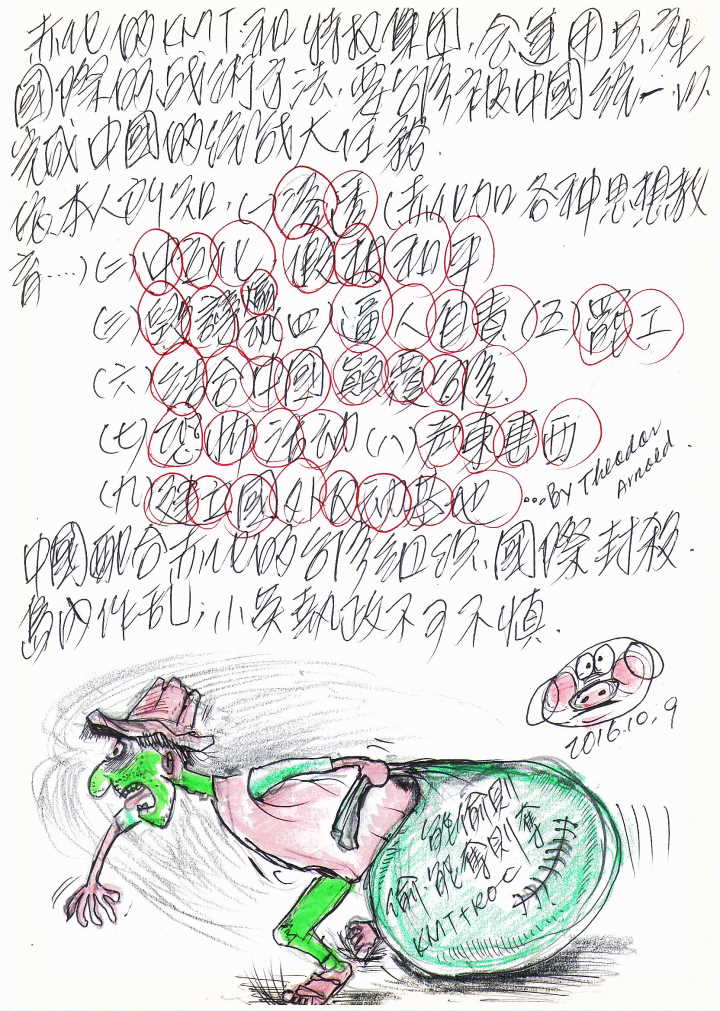 赤化的KMT和特权集团,会運用共產
國際的战術方法,要台湾被中國統一,以
完成中國的统战大任務.
依本人所知,(一)滲透(赤化加各种思想教
育....)(二)中立化 假相和平
(三)毀謗 (四)逼人自責(五)罷工
(六)結合中國顛覆台湾.
(七)恐怖活动(八)声東擊西
(九)建立國外行动基地 ...By Theodor
Arnold.
中國配合赤化的台湾组织,國際封殺.
島内作乱;小英執政不可不慎.
2016.10.9
能偷則
偷.能奪則奪
KMT+ROC